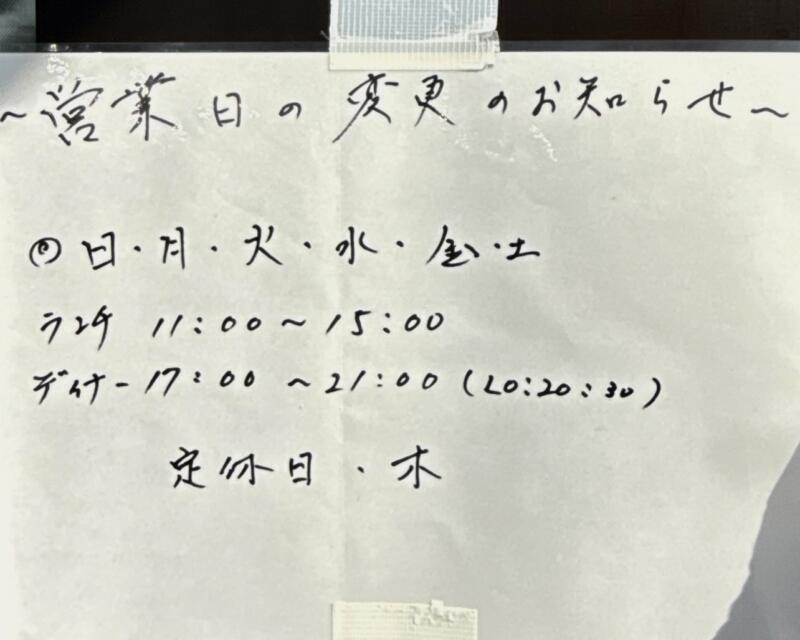 ～営業日の変更のお知らせ～
◎日・月・火・水・金・土
ランチ 11:00～15:00
ディナー17:00～21:00(LO:20:30)
定休日・木